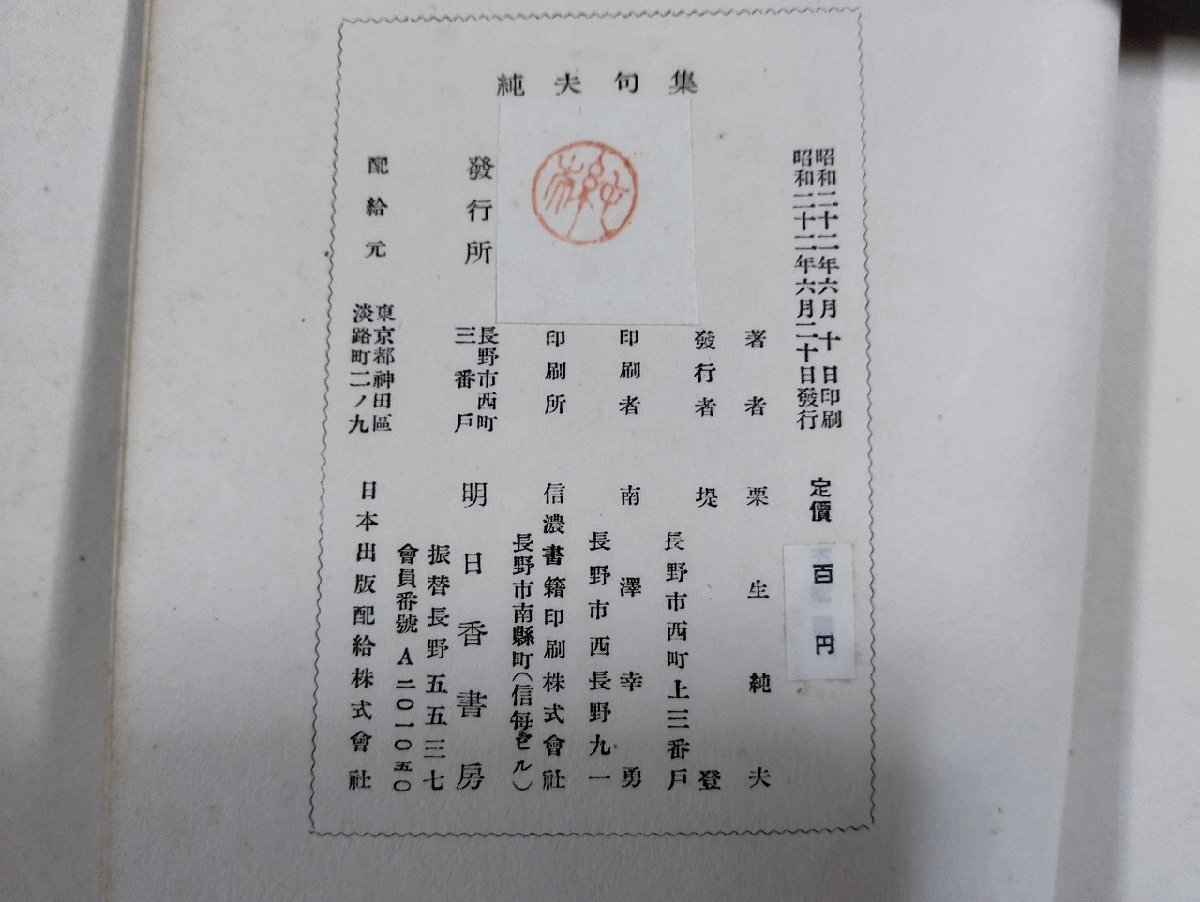 集句夫純
昭和二十二年六月十日印刷
昭和二十二年六月二十日發行
定價
百
円
著者
栗生純夫
發行者
堤登
長野市西町上三番戸
印刷者
南澤幸勇
長野市西長野九一
印刷所
信濃書籍印刷株式會社
長野市南縣町(信每ビル)
發行所
長野市西町
三番戸
明日香書房
振替長野五五三七
會員番號A二〇一〇五〇
配給元
東京都神田區
淡路町二ノ九
日本出版配給株式會社